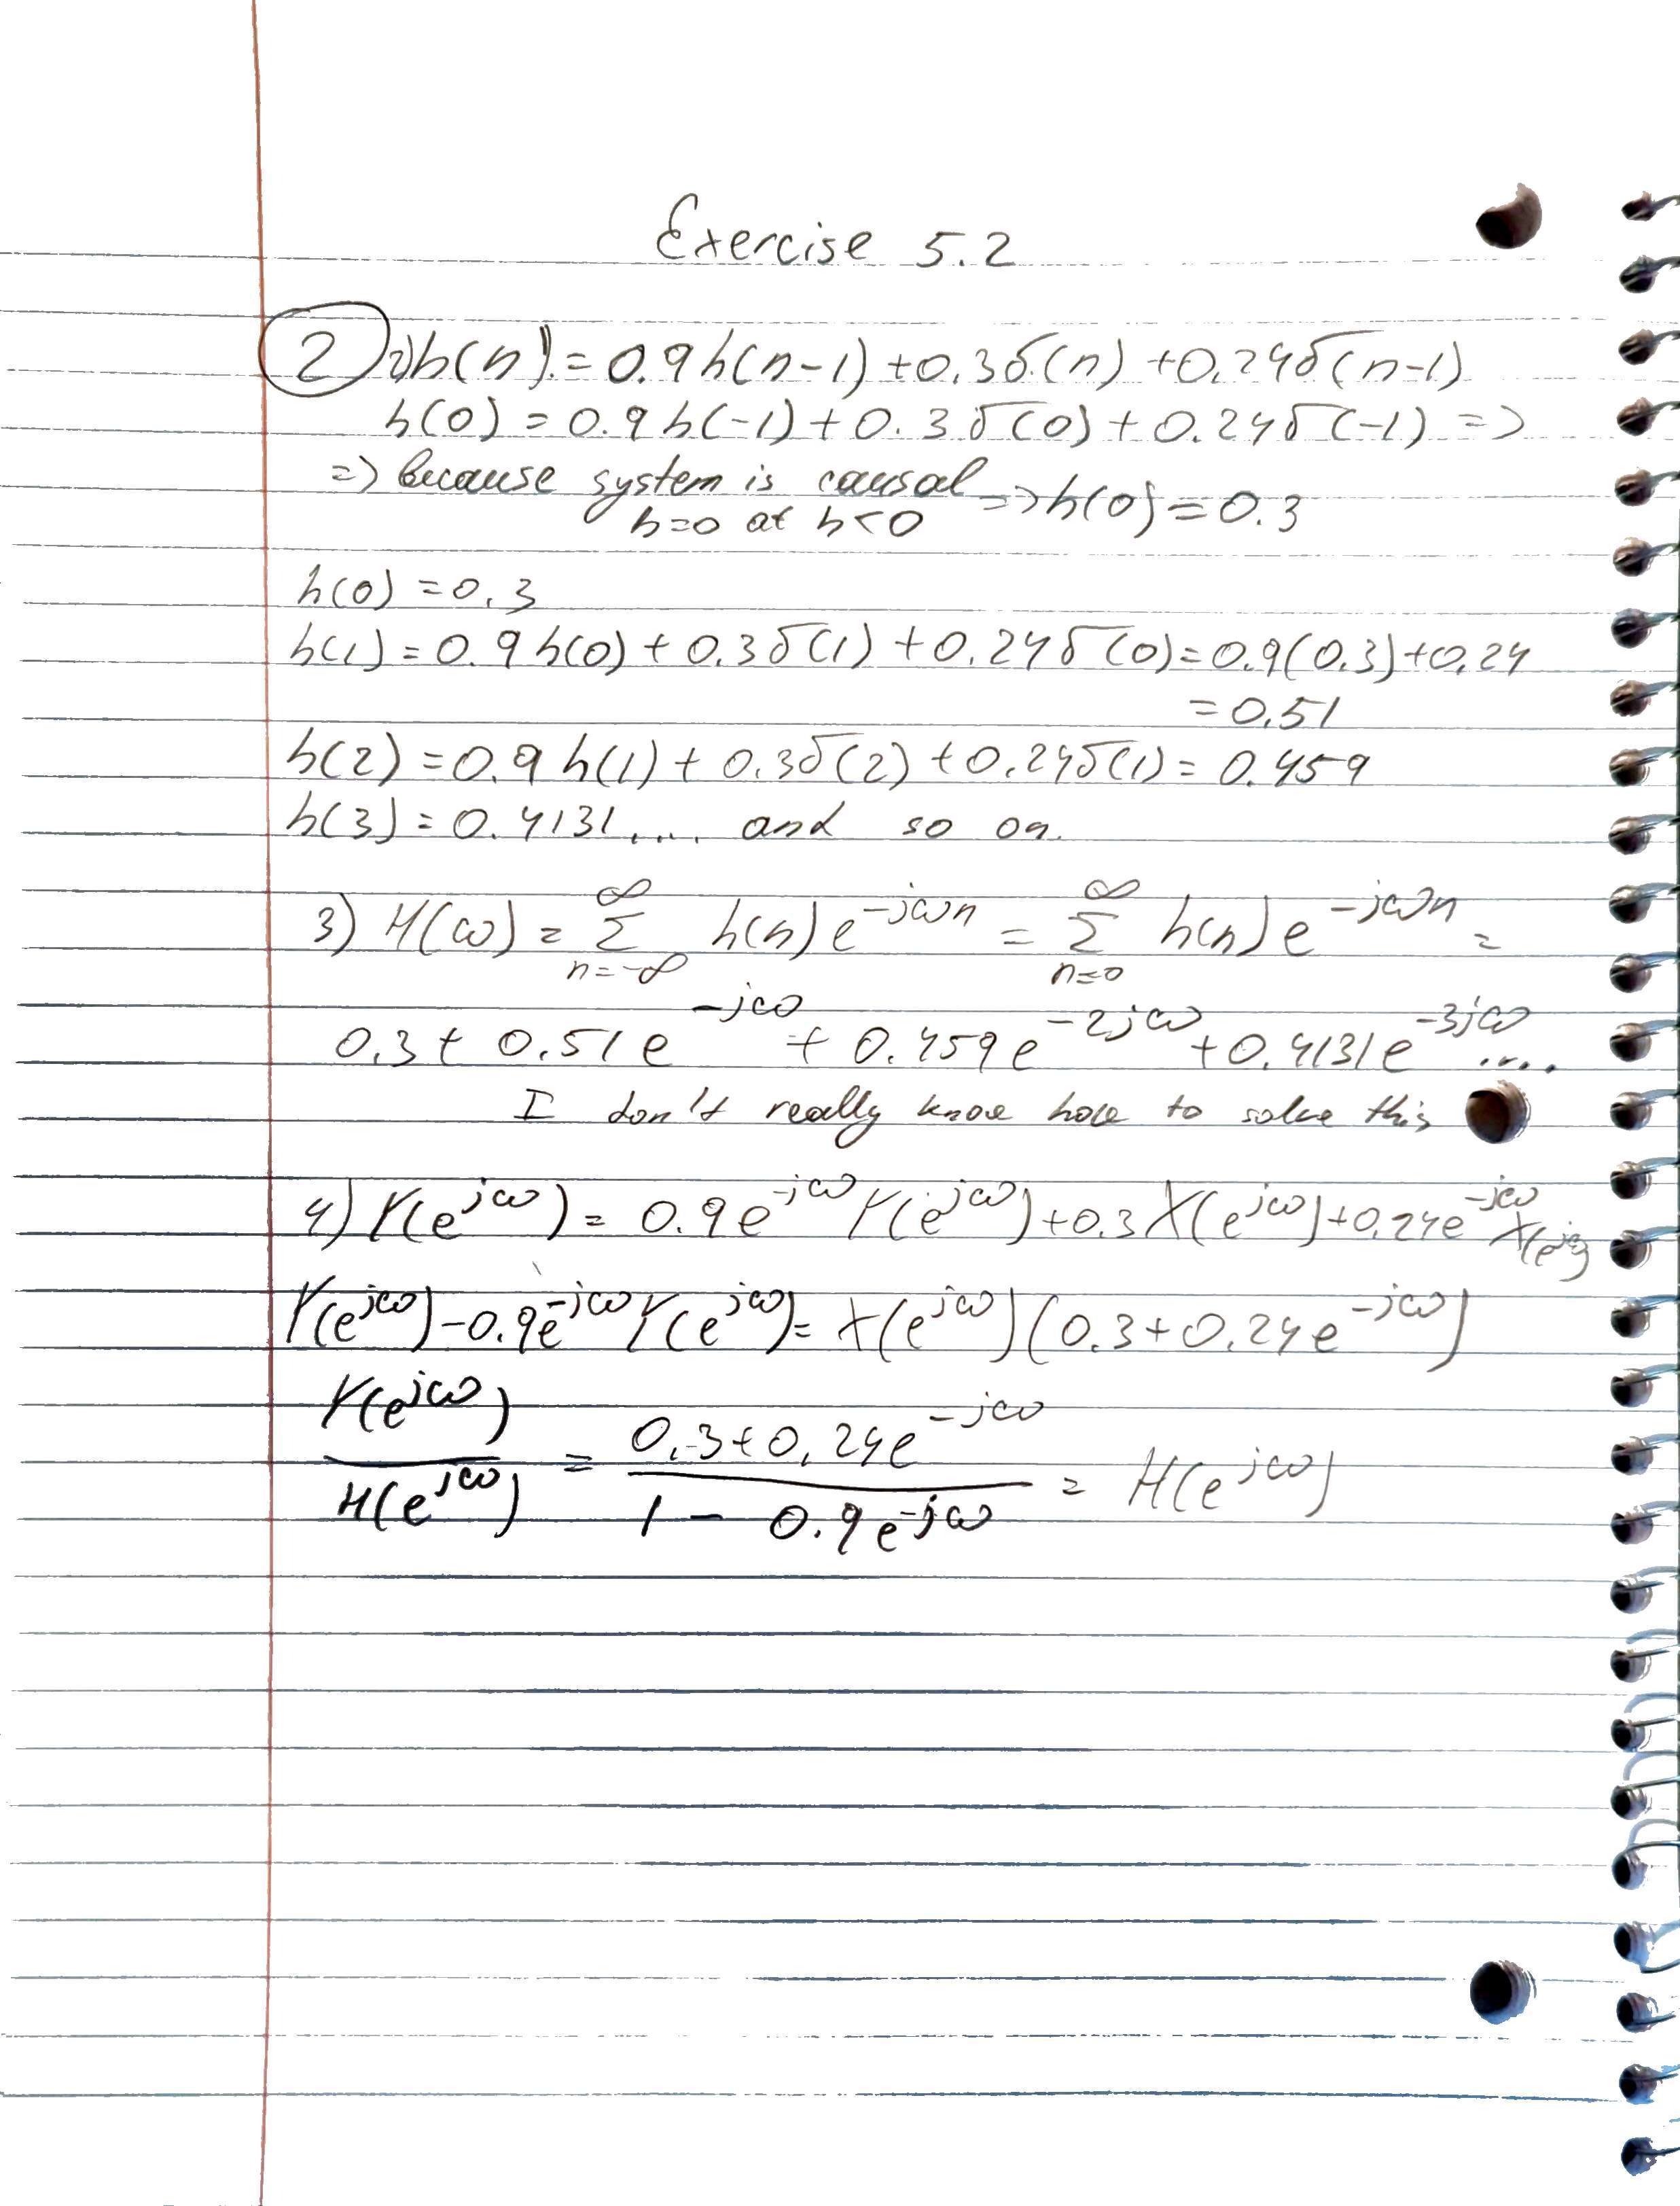 Exercise 5.2
2 2) h(n) = 0.9h(n-1) + 0.3δ(n) + 0.24δ(n-1)
h(0) = 0.9h(-1) + 0.3δ(0) + 0.24δ(-1) =>
=> because system is causal => h(0) = 0.3
h=0 at h<0
h(0) = 0.3
h(1) = 0.9h(0) + 0.3δ(1) + 0.24δ(0) = 0.9(0.3) + 0.24
= 0.51
h(2) = 0.9h(1) + 0.3δ(2) + 0.24δ(1) = 0.459
h(3) = 0.4131.... and so on.
3) H(ω) = Σ_{n=-∞}^{∞} h(n)e^{-jωn} = Σ_{n=0}^{∞} h(n)e^{-jωn} =
0.3 + 0.51e^{-jω} + 0.459e^{-2jω} + 0.4131e^{-3jω} ....
I don't really know how to solve this
4) Y(e^{jω}) = 0.9e^{-jω}Y(e^{jω}) + 0.3X(e^{jω}) + 0.24e^{-jω}X(e^{jω})
Y(e^{jω}) - 0.9e^{-jω}Y(e^{jω}) = X(e^{jω})(0.3 + 0.24e^{-jω})
Y(e^{jω}) / H(e^{jω}) = (0.3 + 0.24e^{-jω}) / (1 - 0.9e^{-jω}) = H(e^{jω})